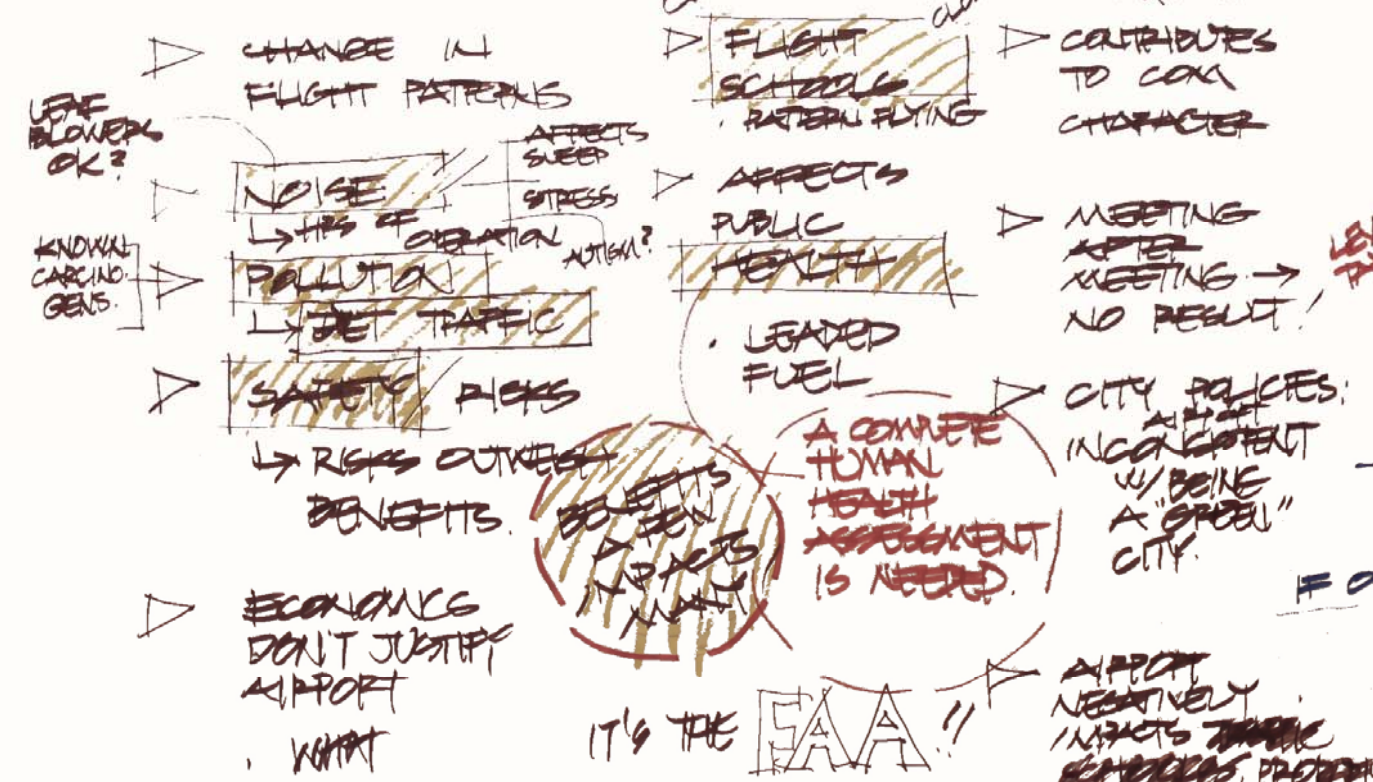 CHANGE IN
FLIGHT PATTERNS
LEAF
BLOWERS
OK?
NOISE
↳ HRS OF OPERATION
AFFECTS
SLEEP
STRESS
AUTISM?
KNOWN
CARCINO-
GENS.
POLLUTION
↳ JET TRAFFIC
SAFETY RISKS
↳ RISKS OUTWEIGH
BENEFITS.
ECONOMICS
DON'T JUSTIFY
AIRPORT
. WHAT
FLIGHT
SCHOOLS
. PATTERN FLYING
AFFECTS
PUBLIC
HEALTH
. LEADED
FUEL
BENEFITS
A FEW
IMPACTS
MANY
A COMPLETE
HUMAN
HEALTH
ASSESSMENT
IS NEEDED.
IT'S THE FAA!!
CONTRIBUTES
TO COM
CHARACTER
MEETING
AFTER
MEETING →
NO RESULT!
CITY POLICIES:
AIRPORT
INCONSISTENT
W/ BEING
A "GREEN"
CITY.
IF
AIRPORT
NEGATIVELY
IMPACTS